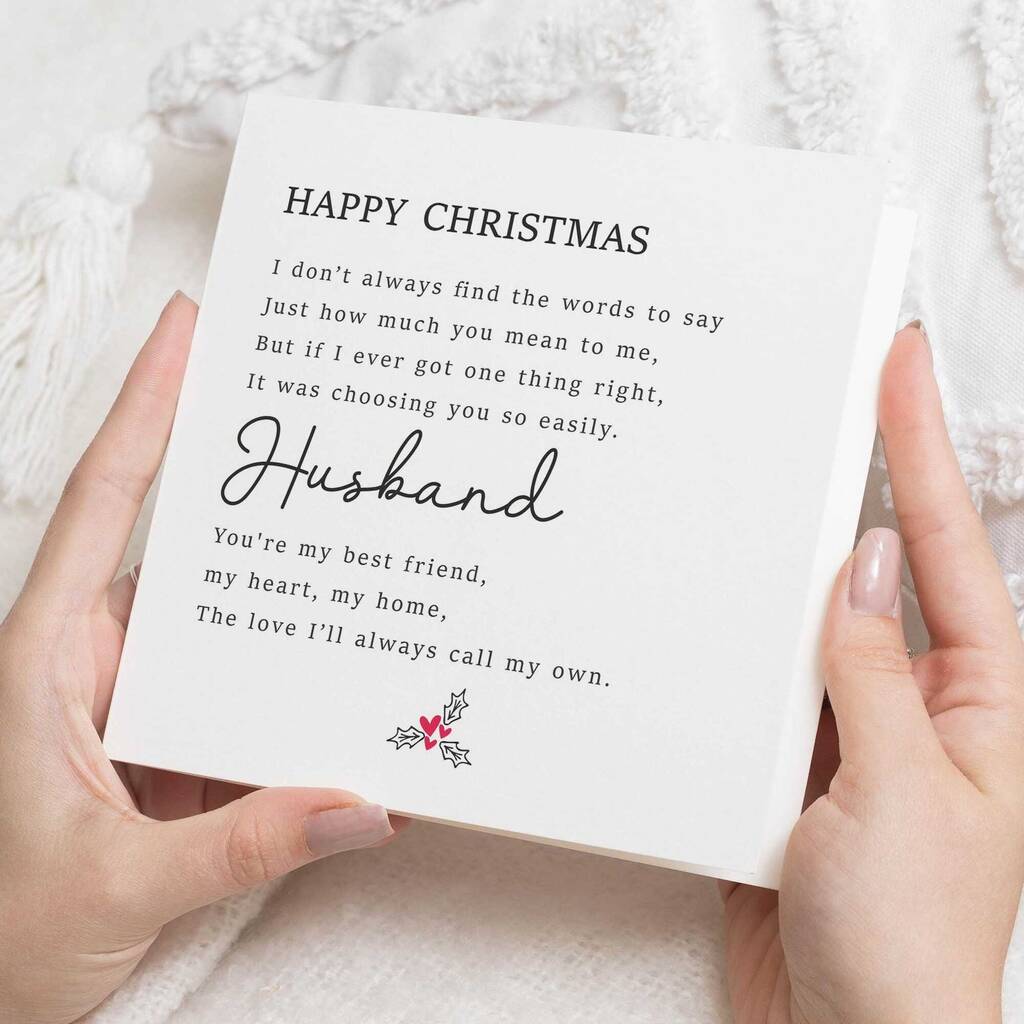 HAPPY CHRISTMAS
I don’t always find the words to say
Just how much you mean to me,
But if I ever got one thing right,
It was choosing you so easily.
Husband
You're my best friend,
my heart, my home,
The love I’ll always call my own.